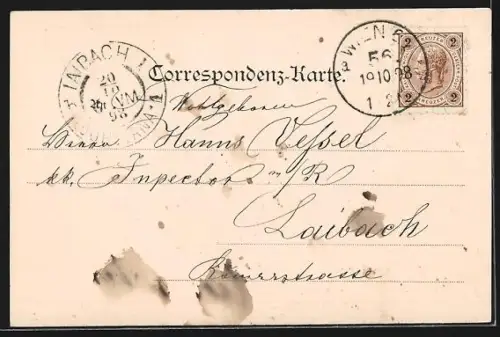 LAIBACH 1
20
10
98
VM
LJUBLJANA 1
WIEN
56
19.10.98
1
2
KREUZER
2
2
2
2
Correspondenz-Karte.
Wohlgeboren
Herrn Hanns Vessel
kk. Inspector
Laibach
Römerstrasse